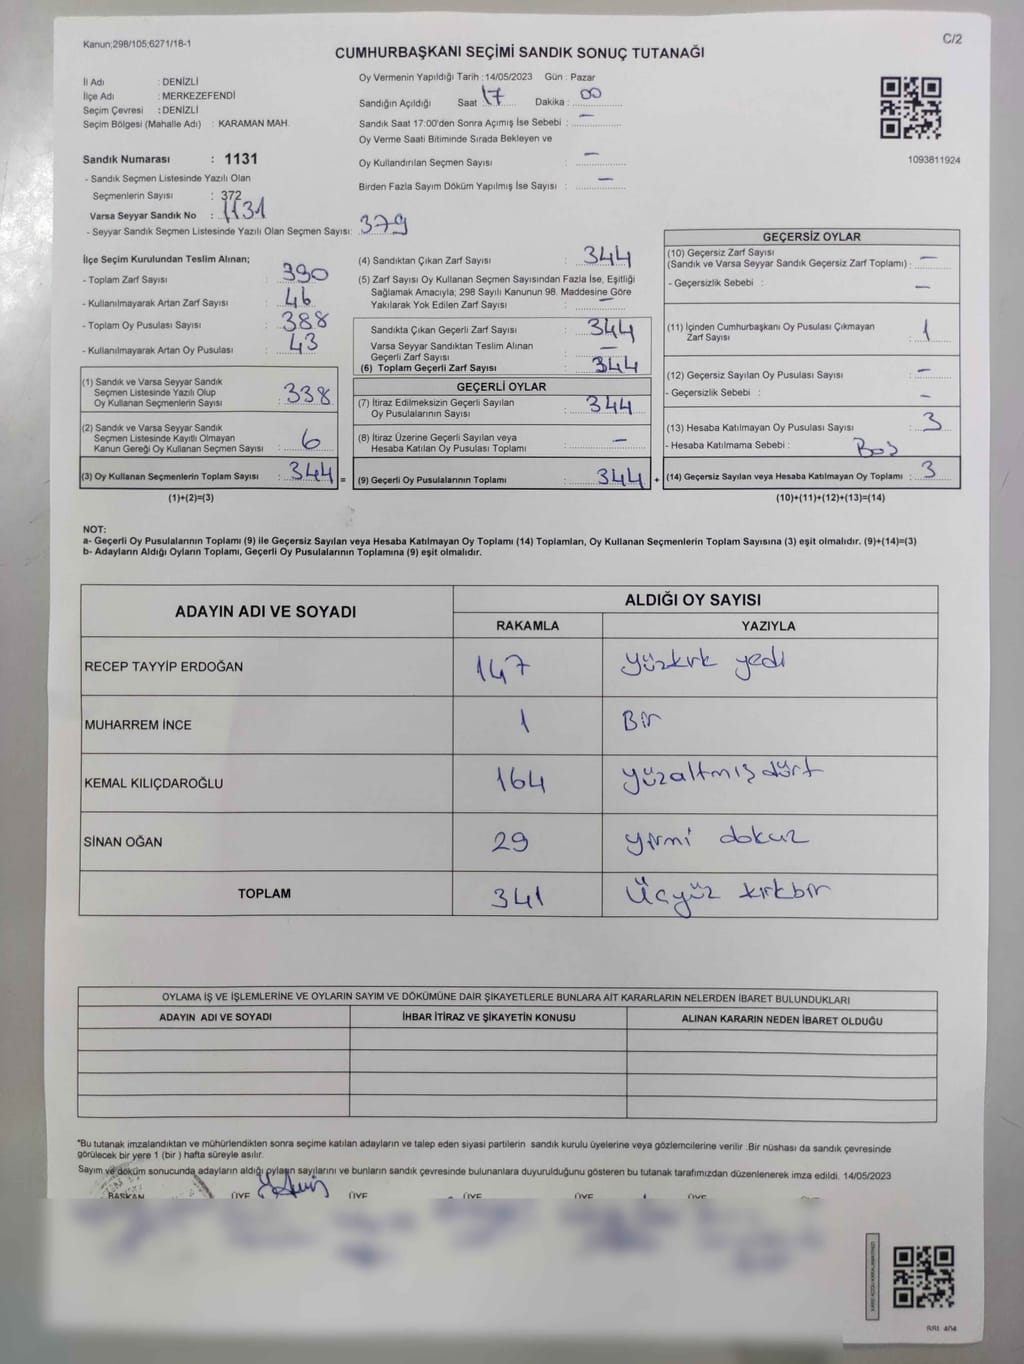 Kanun;298/105;6271/18-1
C/2
CUMHURBAŞKANI SEÇİMİ SANDIK SONUÇ TUTANAĞI
İl Adı : DENİZLİ
İlçe Adı : MERKEZEFENDİ
Seçim Çevresi : DENİZLİ
Seçim Bölgesi (Mahalle Adı) : KARAMAN MAH.
Sandık Numarası : 1131
- Sandık Seçmen Listesinde Yazılı Olan
Seçmenlerin Sayısı : 372
Varsa Seyyar Sandık No : 1131
- Seyyar Sandık Seçmen Listesinde Yazılı Olan Seçmen Sayısı: 379
Oy Vermenin Yapıldığı Tarih :14/05/2023 Gün : Pazar
Sandığın Açıldığı Saat : 17 Dakika : 00
Sandık Saat 17:00'den Sonra Açımış İse Sebebi : —
Oy Verme Saati Bitiminde Sırada Bekleyen ve
Oy Kullandırılan Seçmen Sayısı : —
Birden Fazla Sayım Döküm Yapılmış İse Sayısı : —
1093811924
İlçe Seçim Kurulundan Teslim Alınan;
- Toplam Zarf Sayısı : 390
- Kullanılmayarak Artan Zarf Sayısı : 46
- Toplam Oy Pusulası Sayısı : 388
- Kullanılmayarak Artan Oy Pusulası : 43
(1) Sandık ve Varsa Seyyar Sandık
Seçmen Listesinde Yazılı Olup
Oy Kullanan Seçmenlerin Sayısı : 338
(2) Sandık ve Varsa Seyyar Sandık
Seçmen Listesinde Kayıtlı Olmayan
Kanun Gereği Oy Kullanan Seçmen Sayısı : 6
(3) Oy Kullanan Seçmenlerin Toplam Sayısı : 344 =
(1)+(2)=(3)
(4) Sandıktan Çıkan Zarf Sayısı : 344
(5) Zarf Sayısı Oy Kullanan Seçmen Sayısından Fazla İse, Eşitliği
Sağlamak Amacıyla; 298 Sayılı Kanunun 98. Maddesine Göre
Yakılarak Yok Edilen Zarf Sayısı : —
Sandıkta Çıkan Geçerli Zarf Sayısı : 344
Varsa Seyyar Sandıktan Teslim Alınan
Geçerli Zarf Sayısı : —
(6) Toplam Geçerli Zarf Sayısı : 344
GEÇERLİ OYLAR
(7) İtiraz Edilmeksizin Geçerli Sayılan
Oy Pusulalarının Sayısı : 344
(8) İtiraz Üzerine Geçerli Sayılan veya
Hesaba Katılan Oy Pusulası Toplamı : —
(9) Geçerli Oy Pusulalarının Toplamı : 344 +
GEÇERSİZ OYLAR
(10) Geçersiz Zarf Sayısı
(Sandık ve Varsa Seyyar Sandık Geçersiz Zarf Toplamı) : —
- Geçersizlik Sebebi : —
(11) İçinden Cumhurbaşkanı Oy Pusulası Çıkmayan
Zarf Sayısı : 1
(12) Geçersiz Sayılan Oy Pusulası Sayısı : —
- Geçersizlik Sebebi : —
(13) Hesaba Katılmayan Oy Pusulası Sayısı : 3
- Hesaba Katılmama Sebebi : Boş
(14) Geçersiz Sayılan veya Hesaba Katılmayan Oy Toplamı : 3
(10)+(11)+(12)+(13)=(14)
NOT:
a- Geçerli Oy Pusulalarının Toplamı (9) ile Geçersiz Sayılan veya Hesaba Katılmayan Oy Toplamı (14) Toplamları, Oy Kullanan Seçmenlerin Toplam Sayısına (3) eşit olmalıdır. (9)+(14)=(3)
b- Adayların Aldığı Oyların Toplamı, Geçerli Oy Pusulalarının Toplamına (9) eşit olmalıdır.
ADAYIN ADI VE SOYADI
ALDIĞI OY SAYISI
RAKAMLA YAZIYLA
RECEP TAYYİP ERDOĞAN 147 yüzkırk yedi
MUHARREM İNCE 1 Bir
KEMAL KILIÇDAROĞLU 164 yüzaltmış dört
SİNAN OĞAN 29 yirmi dokuz
TOPLAM 341 Üçyüz kırkbir
OYLAMA İŞ VE İŞLEMLERİNE VE OYLARIN SAYIM VE DÖKÜMÜNE DAİR ŞİKAYETLERLE BUNLARA AİT KARARLARIN NELERDEN İBARET BULUNDUKLARI
ADAYIN ADI VE SOYADI İHBAR İTİRAZ VE ŞİKAYETİN KONUSU ALINAN KARARIN NEDEN İBARET OLDUĞU
*Bu tutanak imzalandıktan ve mühürlendikten sonra seçime katılan adayların ve talep eden siyasi partilerin sandık kurulu üyelerine veya gözlemcilerine verilir .Bir nüshası da sandık çevresinde
görülecek bir yere 1 (bir ) hafta süreyle asılır.
Sayım ve döküm sonucunda adayların aldığı oyların sayılarını ve bunların sandık çevresinde bulunanlara duyurulduğunu gösteren bu tutanak tarafımızdan düzenlenerek imza edildi. 14/05/2023
BAŞKAN ÜYE ÜYE ÜYE ÜYE ÜYE